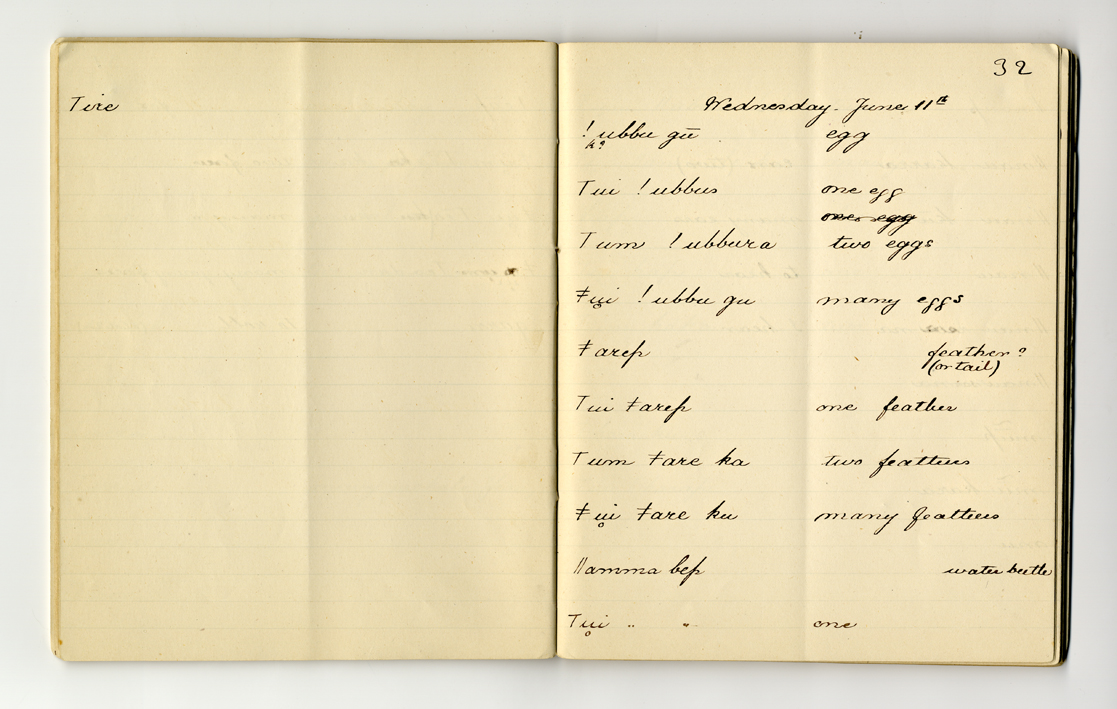 Tire
32
Wednesday. June 11th
! ubbu gū egg
k?
Tui ! ubbus one egg
one egg
Tum ! ubbura two eggs
ǂui ! ubbu gu many eggs
ǂarep feather?
(or tail)
Tui ǂarep one feather
Tum ǂare ka two feathers
ǂui ǂare ku many feathers
ǁamma bep water beetle
Tui " " one